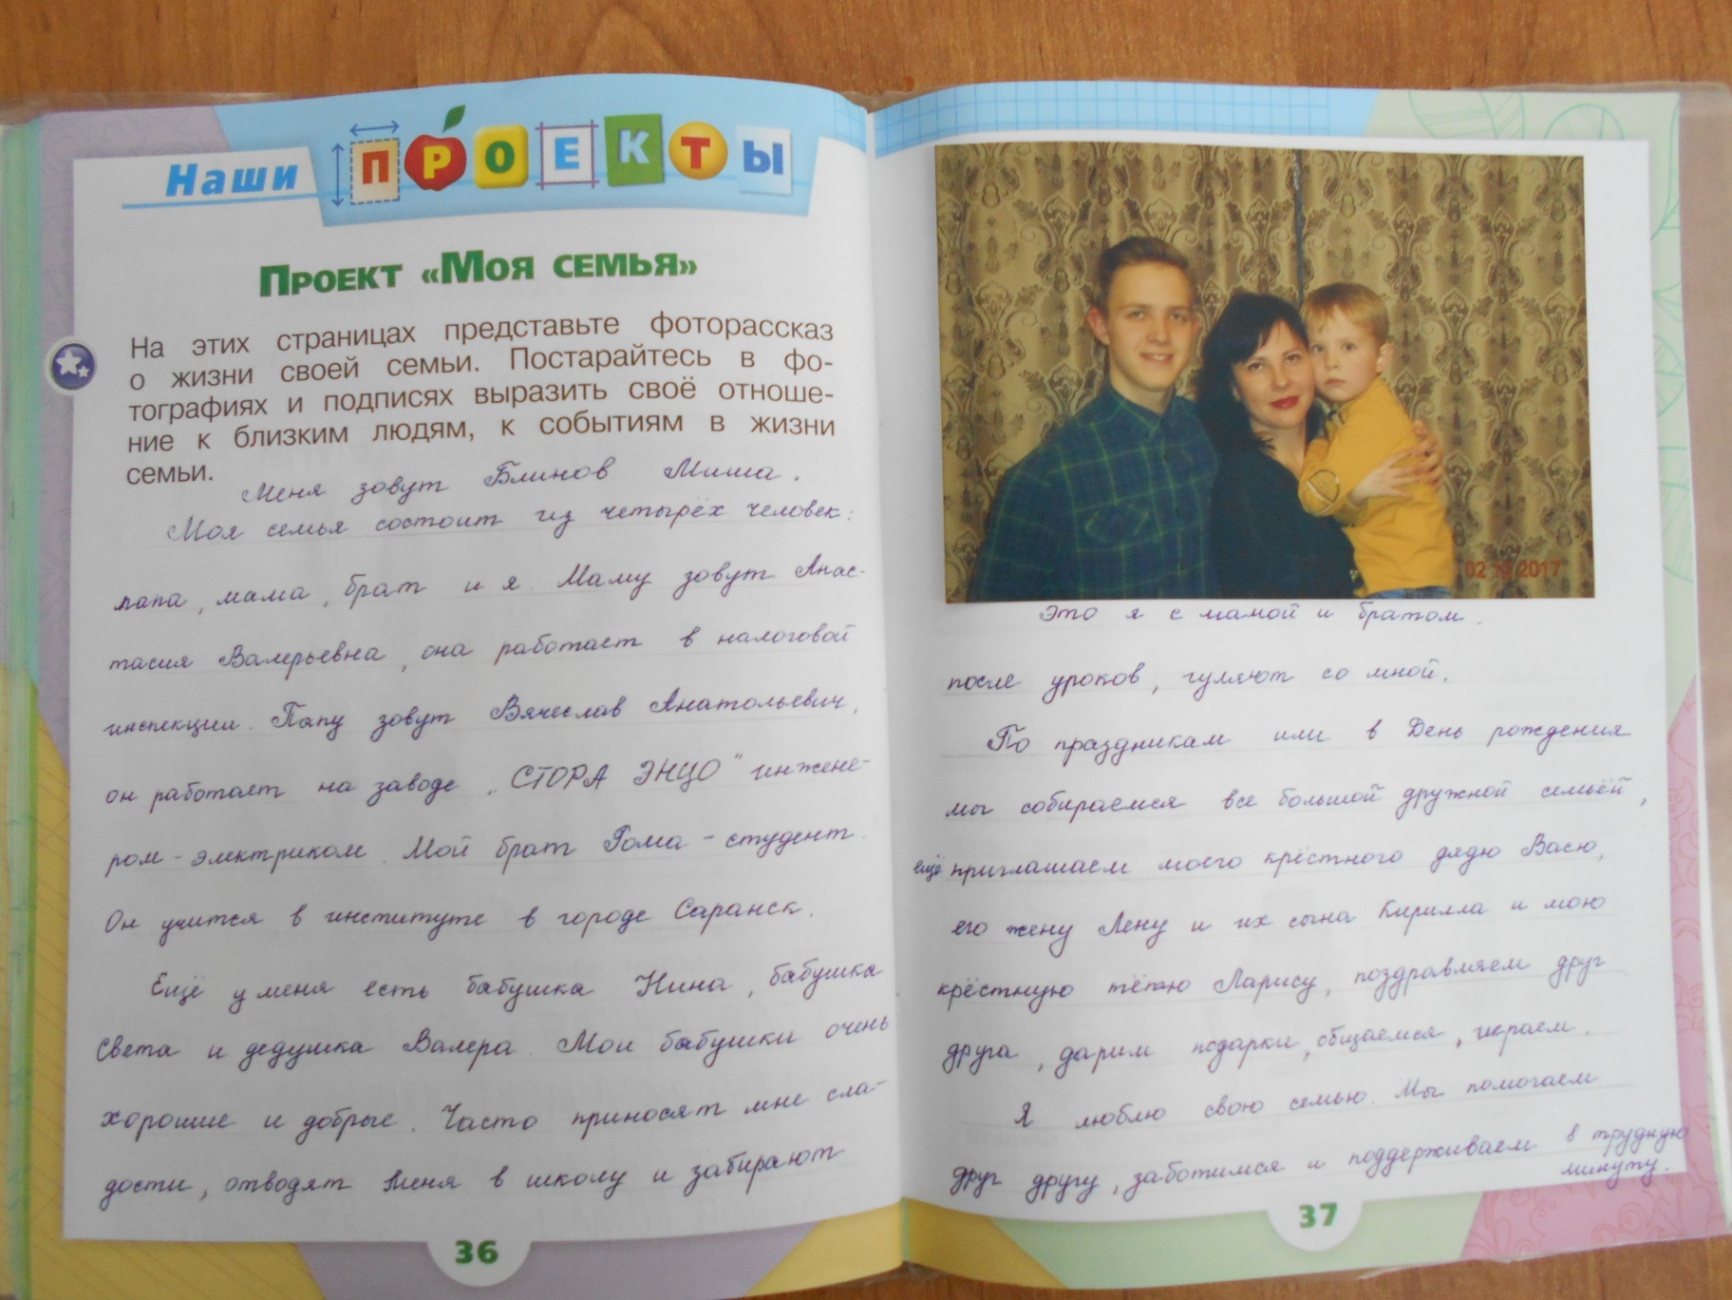 Наши ПРОЕКТЫ
Проект «Моя семья»
На этих страницах представьте фоторассказ
о жизни своей семьи. Постарайтесь в фо-
тографиях и подписях выразить своё отноше-
ние к близким людям, к событиям в жизни
семьи.
Меня зовут Блинов Миша.
Моя семья состоит из четырёх человек:
папа, мама, брат и я. Маму зовут Анас-
тасия Валерьевна, она работает в налоговой
инспекции. Папу зовут Вячеслав Анатольевич,
он работает на заводе „СТОРА ЭНЦО" инжене-
ром - электриком. Мой брат Рома - студент.
Он учится в институте в городе Саранск.
Ещё у меня есть бабушка Нина, бабушка
Света и дедушка Валера. Мои бабушки очень
хорошие и добрые. Часто приносят мне сла-
дости, отводят меня в школу и забирают
36
02 2017
Это я с мамой и братом.
после уроков, гуляют со мной.
По праздникам или в День рождения
мы собираемся все большой дружной семьёй,
ещё приглашаем моего крёстного дядю Васю,
его жену Лену и их сына Кирилла и мою
крёстную тётю Ларису, поздравляем друг
друга, дарим подарки, общаемся, играем.
Я люблю свою семью. Мы помогаем
друг другу, заботимся и поддерживаем в трудную
минуту.
37